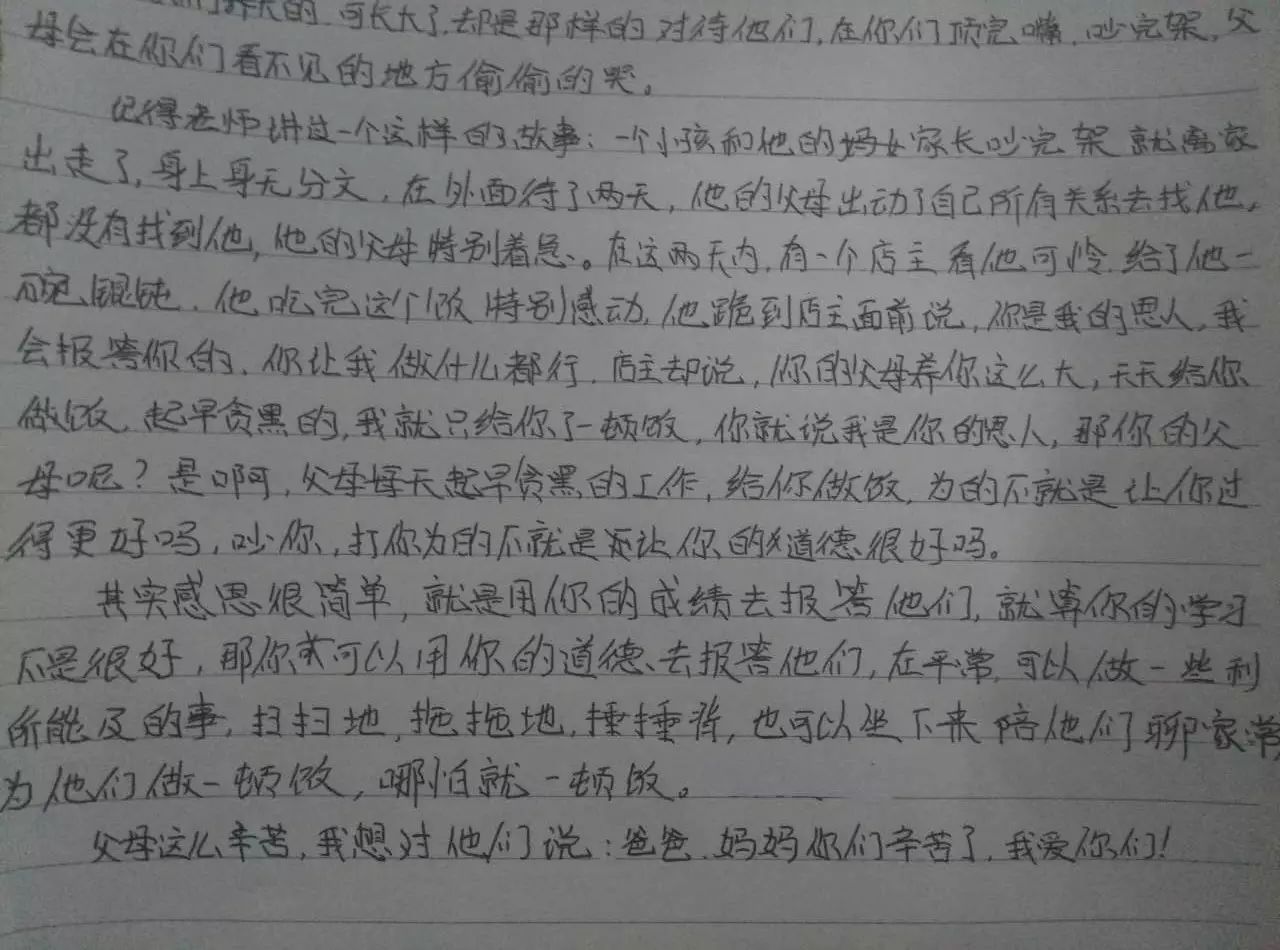 们聊天的,可长大了,却是那样的对待他们,在你们顶完嘴,吵完架,父
母会在你们看不见的地方偷偷的哭。
记得老师讲过一个这样的故事:一个小孩和他的妈女家长吵完架就离家
出走了,身上身无分文,在外面待了两天,他的父母出动了自己所有关系去找他,
都没有找到他,他的父母特别着急。在这两天内,有一个店主看他可怜,给了他一
碗馄饨,他吃完这个饭特别感动,他跪到店主面前说,你是我的恩人,我
会报答你的,你让我做什么都行,店主却说,你的父母养你这么大,天天给你
做饭,起早贪黑的,我就只给你了一顿饭,你就说我是你的恩人,那你的父
母呢?是啊,父母每天起早贪黑的工作,给你做饭,为的不就是让你过
得更好吗,吵你,打你为的不就是还让你的道德很好吗。
其实感恩很简单,就是用你的成绩去报答他们,就算你的学习
不是很好,那你可以用你的道德去报答他们,在平常,可以做一些利
所能及的事,扫扫地,拖拖地,捶捶背,也可以坐下来陪他们聊家常
为他们做一顿饭,哪怕就一顿饭。
父母这么辛苦,我想对他们说:爸爸、妈妈你们辛苦了,我爱你们!